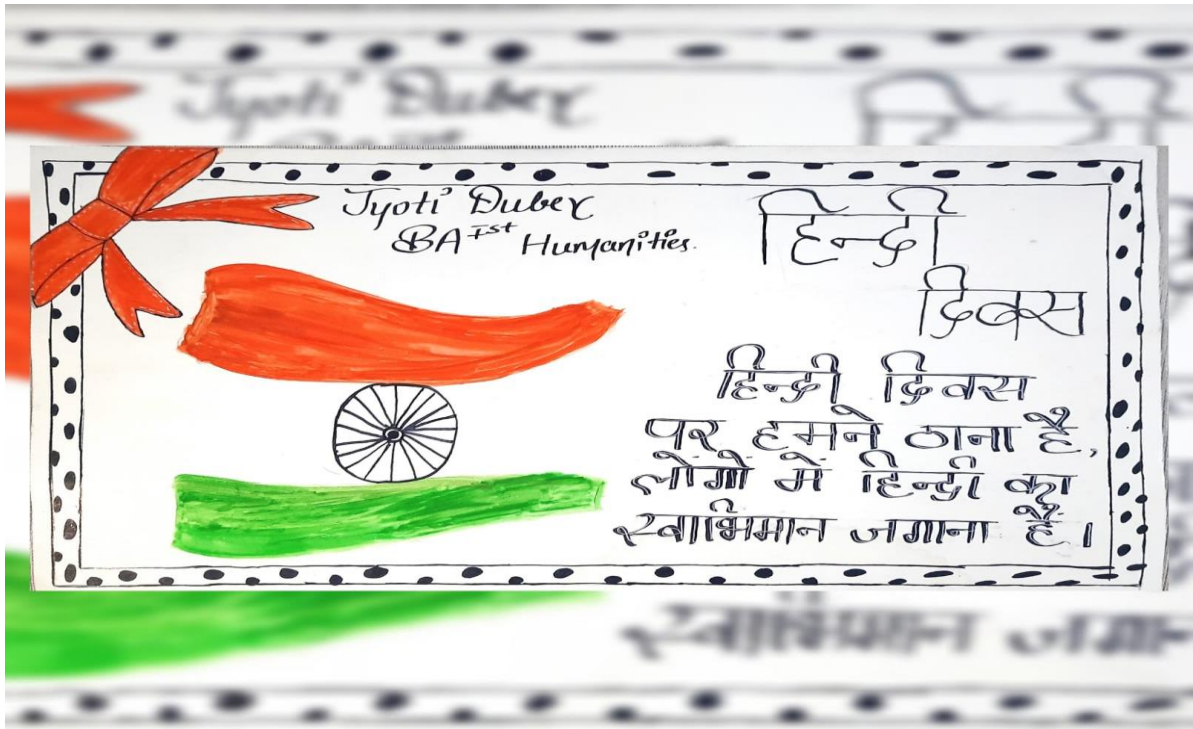 Jyoti Dubey
BA Ist Humanities.
हिन्दी
दिवस
हिन्दी दिवस
पर हमने ठाना है,
लोगों में हिन्दी का
स्वाभिमान जगाना है।